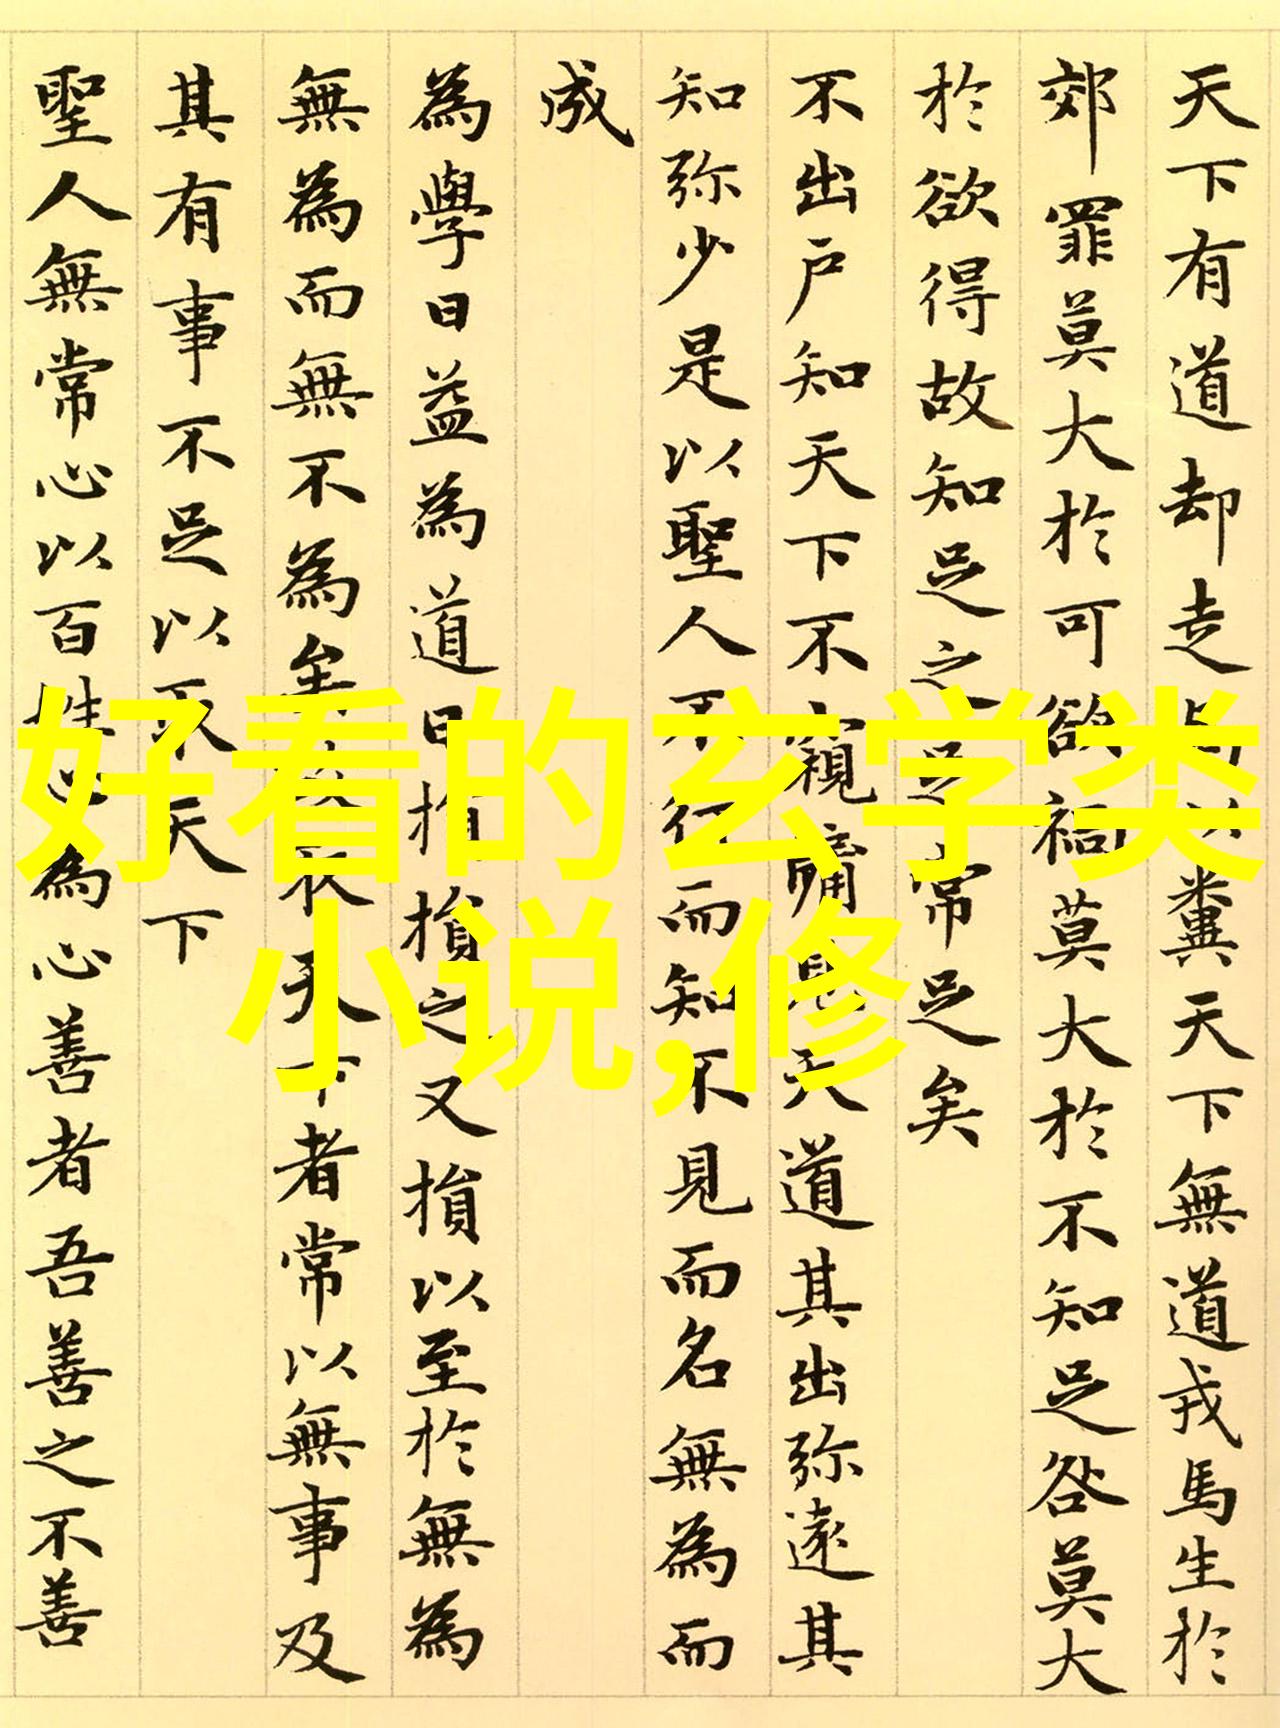 天下有道却走馬以糞天下無道戎馬生於
郊罪莫大於可欲禍莫大於不知足咎莫大
於欲得故知足之足常足矣
不出戶知天下不窺牖見天道其出弥遠其
知弥少是以聖人不行而知不見而名無為而
成
為學日益為道日損損之又損以至於無為
無為而無不為矣故取天下者常以無事及
其有事不足以取天下
聖人無常心以百姓心為心善者吾善之不善
好看的玄学类
小说,修